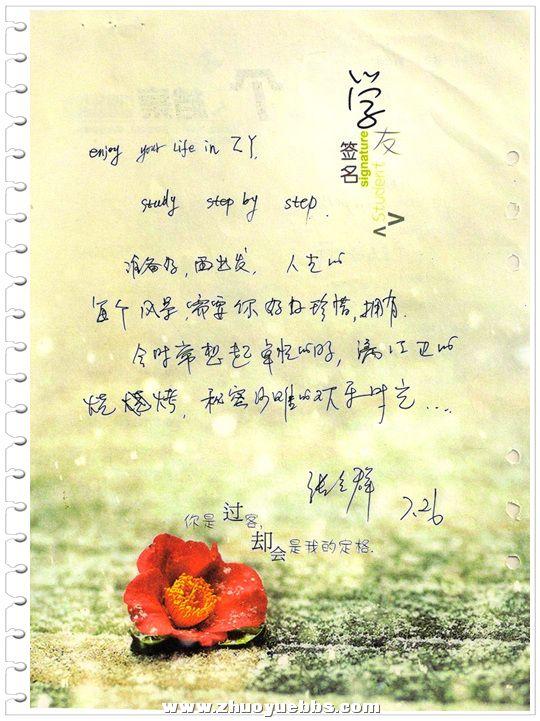 学友
签名
signature
Student
enjoy your life in ZY.
study step by step.
准备好,再出发,人生的
每个风景,需要你好好珍惜,拥有.
会时常想起卓悦的好,漓江边的
烧烤,
张 群 7.26
你是过客,
却会是我的定格.
www.zhuoyuebbs.com